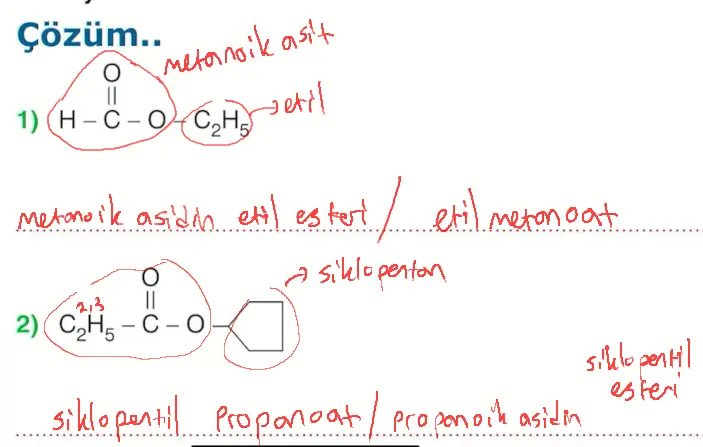 Çözüm..
metanoik asit
O
||
1) H – C – O – C₂H₅ → etil
metanoik asidin etil esteri / etil metanoat
→ siklopentan
O
2,3 ||
2) C₂H₅ – C – O –
siklopentil esteri
siklopentil propanoat / propanoik asidin